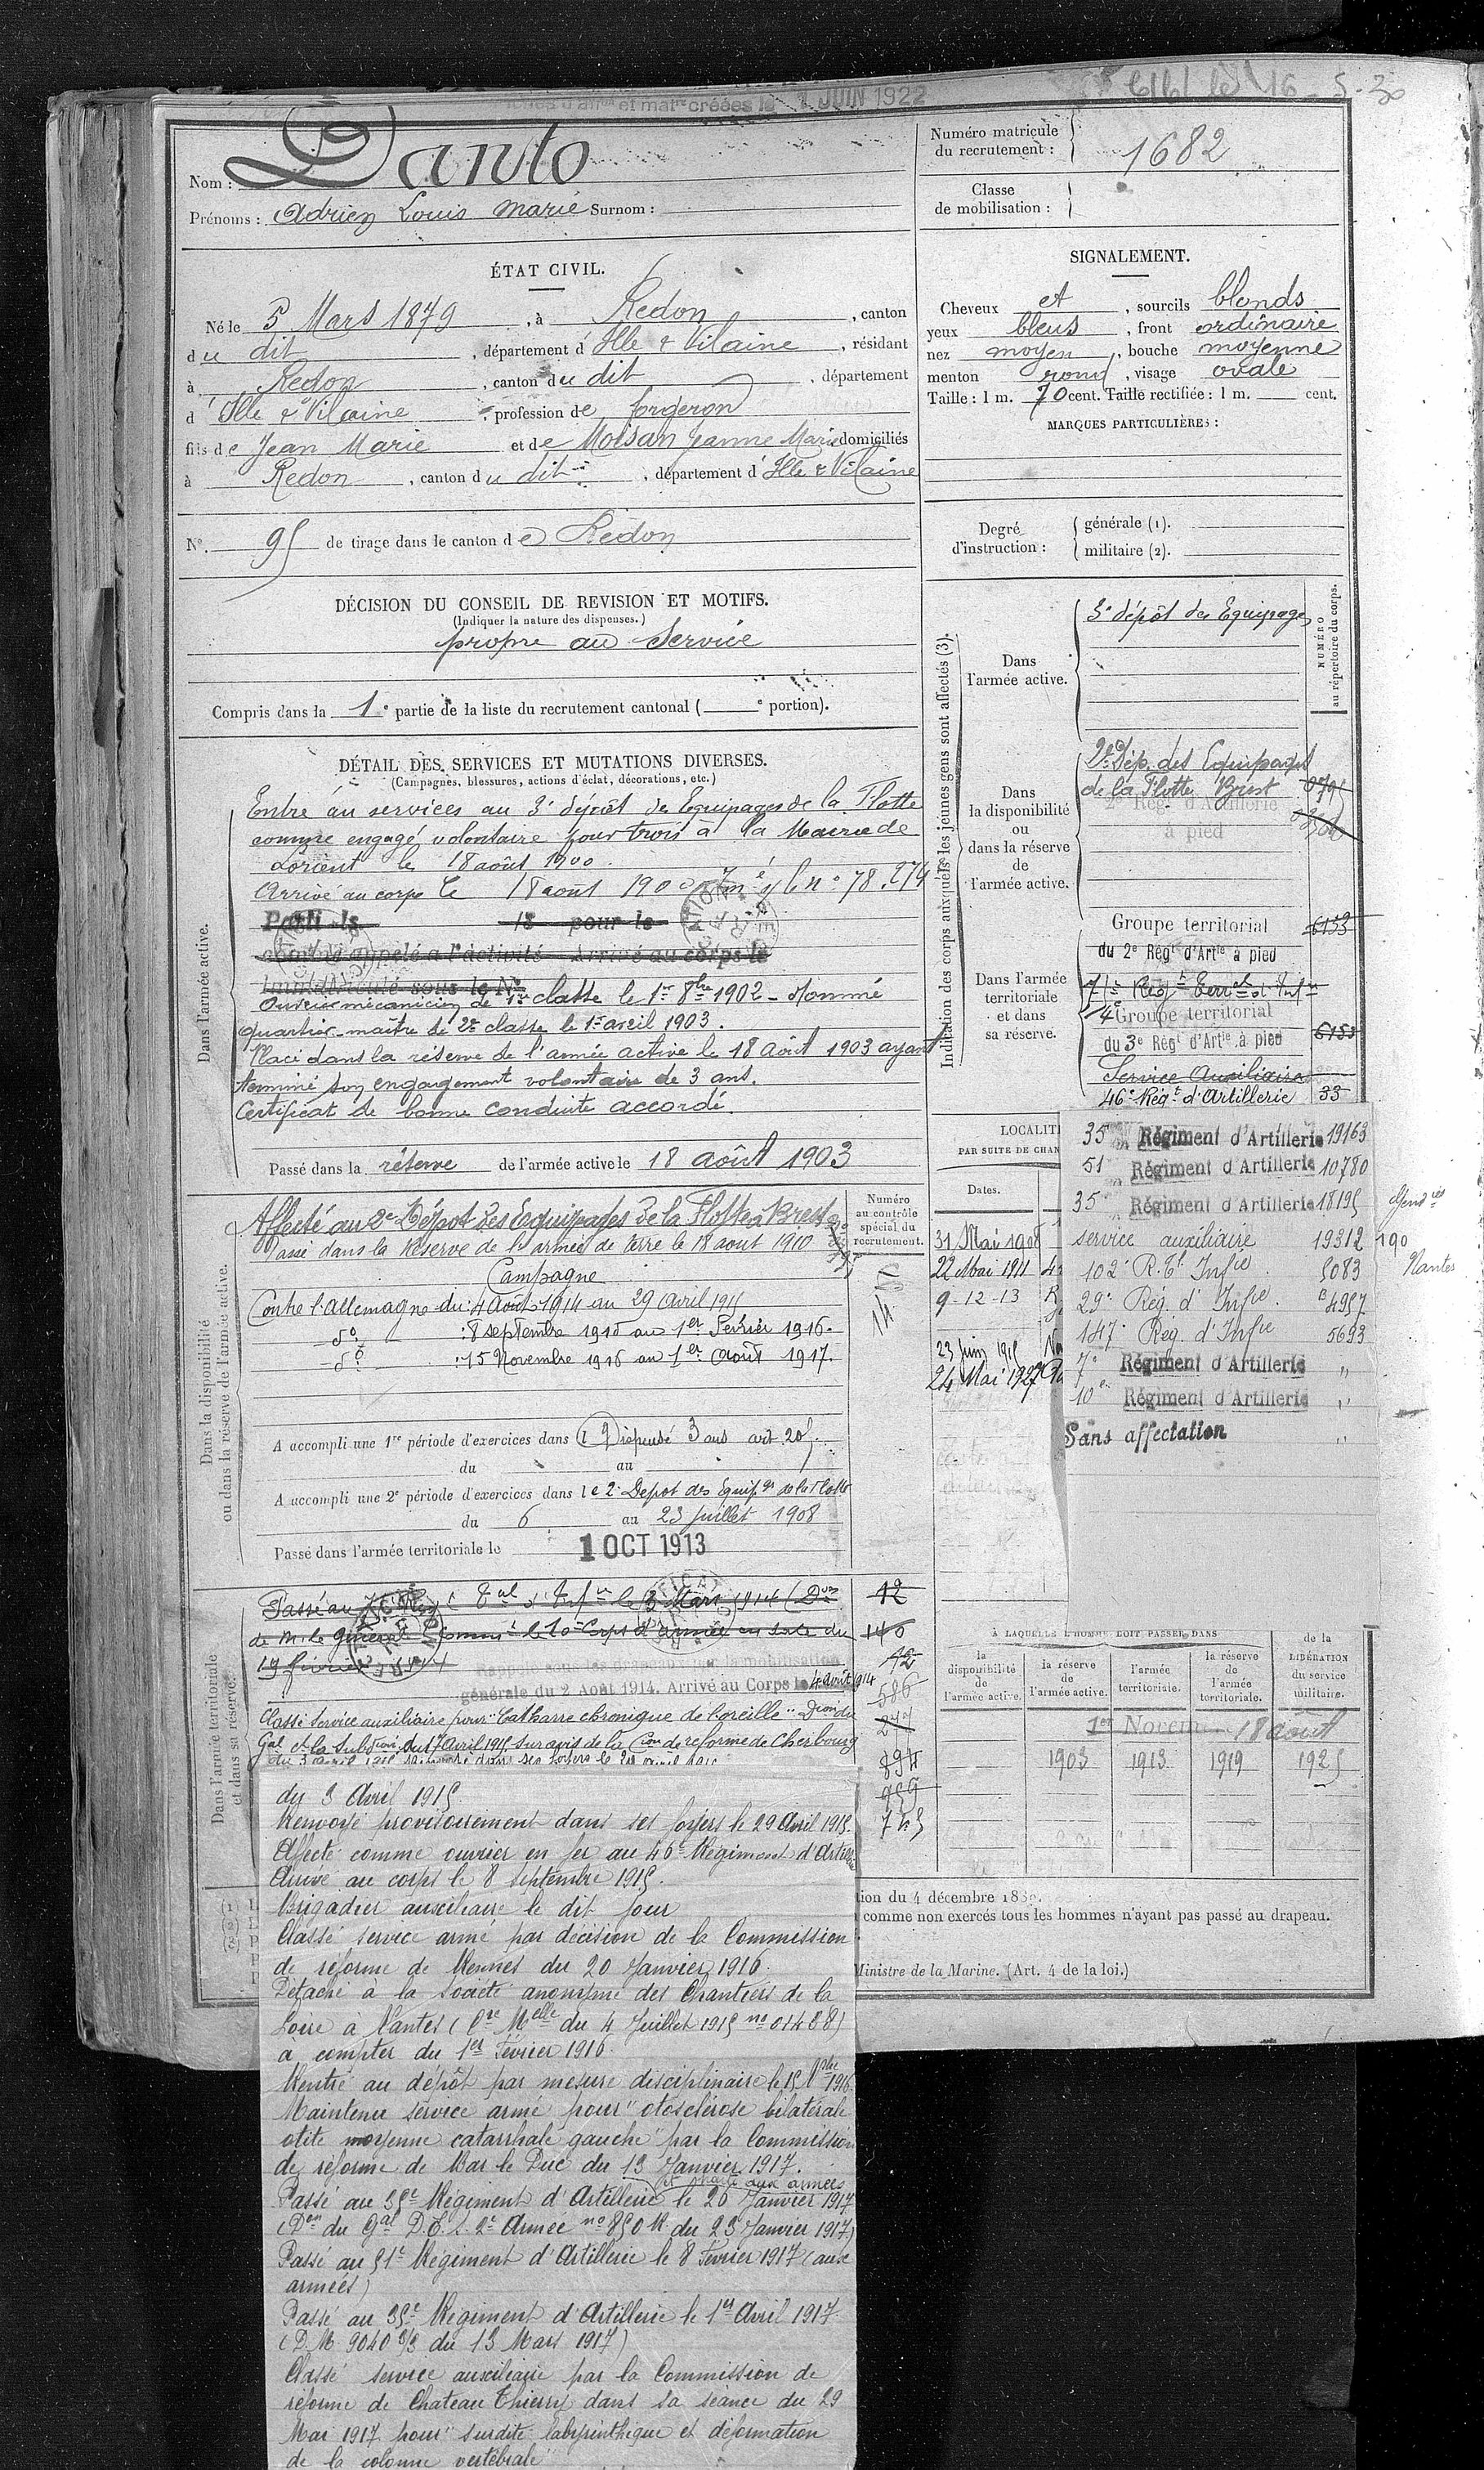 1 JUIN 1922
Nom : Danto
Prénoms : Adrien Louis Marie Surnom :
Numéro matricule
du recrutement : 1682
Classe
de mobilisation :
ÉTAT CIVIL.
Né le 5 Mars 1879, à Redon, canton
du dit, département d'Ille & Vilaine, résidant
à Redon, canton du dit, département
d'Ille & Vilaine, profession de forgeron
fils de Jean Marie et de Moisan Jeanne Marie domiciliés
à Redon, canton du dit, département d'Ille & Vilaine
No. 95 de tirage dans le canton de Redon
SIGNALEMENT.
Cheveux et, sourcils blonds
yeux bleus, front ordinaire
nez moyen, bouche moyenne
menton rond, visage ovale
Taille : 1 m. 70 cent. Taille rectifiée : 1 m. cent.
MARQUES PARTICULIÈRES :
Degré
d'instruction :
générale (1).
militaire (2).
DÉCISION DU CONSEIL DE REVISION ET MOTIFS.
(Indiquer la nature des dispenses.)
propre au Service
Compris dans la 1e partie de la liste du recrutement cantonal ( e portion).
DÉTAIL DES SERVICES ET MUTATIONS DIVERSES.
(Campagnes, blessures, actions d'éclat, décorations, etc.)
Dans l'armée active.
Entré au services au 3e dépôt des Equipages de la Flotte
comme engagé volontaire pour trois à la Mairie de
Lorient le 18 août 1900.
Arrivé au corps le 18 aout 1900 Imé s/ le no 78.274
Parti le 18 pour le
appelé à l'activité Arrivé au corps le
immatriculé sous le No
Ouvrier mécanicien de 1re classe le 1er 8bre 1902 - Nommé
quartier-maître de 2e classe le 1er avril 1903.
Placé dans la réserve de l'armée active le 18 Août 1903 ayant
terminé son engagement volontaire de 3 ans.
Certificat de bonne conduite accordé.
Passé dans la réserve de l'armée active le 18 août 1903
Indication des corps auxquels les jeunes gens sont affectés (3).
NUMÉRO
au répertoire du corps.
Dans
l'armée active.
3e dépôt des Equipages
Dans
la disponibilité
ou
dans la réserve
de
l'armée active.
2e Dép. des Equipages
de la Flotte Brest
2e Régt d'Artillerie
à pied
Dans l'armée
territoriale
et dans
sa réserve.
Groupe territorial 6153
du 2e Régt d'Artie à pied
Groupe territorial
du 3e Régt d'Artie à pied 6153
Service Auxiliaire
46e Régt d'Artillerie 33
35 Régiment d'Artillerie 19163
51 Régiment d'Artillerie 10780
35 Régiment d'Artillerie 18195
service auxiliaire 19312
102e R.Tt Infie 5083
29e Rég. d'Infie 4957
147e Rég. d'Infie 5693
7e Régiment d'Artillerie "
10e Régiment d'Artillerie "
Sans affectation "
190
Nantes
LOCALIT
PAR SUITE DE CHAN
Dates.
31 Mai 1908
22 Mai 1911
9-12-13
23 juin 1915
24 Mai 1927
Dans la disponibilité
ou dans la réserve de l'armée active.
Numéro
au contrôle
spécial du
recrutement.
Affecté au 2e Dépôt des Equipages de la Flotte à Brest
Passé dans la Réserve de l'armée de terre le 18 aout 1910
Campagne
Contre l'Allemagne du : 4 Août 1914 au 29 Avril 1915
do : 8 septembre 1915 au 1er Février 1916.
do : 15 Novembre 1916 au 1er Août 1917.
A accompli une 1re période d'exercices dans Dispensé 3 ans art. 20
du au
A accompli une 2e période d'exercices dans le 2e Dépot des Equipges de la Flotte
du 6 au 23 juillet 1908
Passé dans l'armée territoriale le 1 OCT 1913
Dans l'armée territoriale
et dans sa réserve.
le 3 Mars 1914 (Don
de M. le Général Commt le 10e Corps d'armée en date du
19 février 1914
Rappelé sous les drapeaux par la mobilisation
générale du 2 Août 1914. Arrivé au Corps le 4 août 1914
Classé Service auxiliaire pour "Catharre chronique de l'oreille" Don du
Gal Ct la Subdion du 17 Avril 1915, sur avis de la Con de réforme de Cherbourg
12
140
42
586
277
894
959
745
du 3 Avril 1915.
Renvoyé provisoirement dans ses foyers le 29 Avril 1915.
Affecté comme ouvrier en fer au 46e Régiment d'Artie
Arrivé au corps le 8 Septembre 1915.
Brigadier auxiliaire le dit jour
Classé service armé par décision de la Commission
de réforme de Rennes du 20 Janvier 1916.
Détaché à la société anonyme des Chantiers de la
Loire à Nantes (Cre Melle du 4 Juillet 1915 no 01488)
a compter du 1er Février 1916.
Rentré au dépôt par mesure disciplinaire le 15 9bre 1916.
Maintenu service armé pour "otosclérose bilatérale
otite moyenne catarrhale gauche" par la Commission
de réforme de Bar le Duc du 13 Janvier 1917.
et parti aux armées
Passé au 35e Régiment d'Artillerie le 26 Janvier 1917
(Don du Gal D.E.S. 2e Armée no 850 R. du 23 Janvier 1917)
Passé au 51e Régiment d'Artillerie le 8 Février 1917 (aux
armées)
Passé au 35e Régiment d'Artillerie le 1er Avril 1917
(D.M. 9040 3/3 du 13 Mars 1917)
Classé service auxiliaire par la Commission de
réforme de Chateau Thierry dans sa séance du 29
Mai 1917 pour "surdité labyrinthique et déformation
de la colonne vertébrale"
À LAQUELLE L'HOMME DOIT PASSER DANS
la
disponibilité
de
l'armée active.
la réserve
de
l'armée active.
l'armée
territoriale.
la réserve
de
l'armée
territoriale.
de la
LIBÉRATION
du service
militaire.
18 août
1903 1913 1919 1925
tion du 4 décembre 1889.
comme non exercés tous les hommes n'ayant pas passé au drapeau.
Ministre de la Marine. (Art. 4 de la loi.)